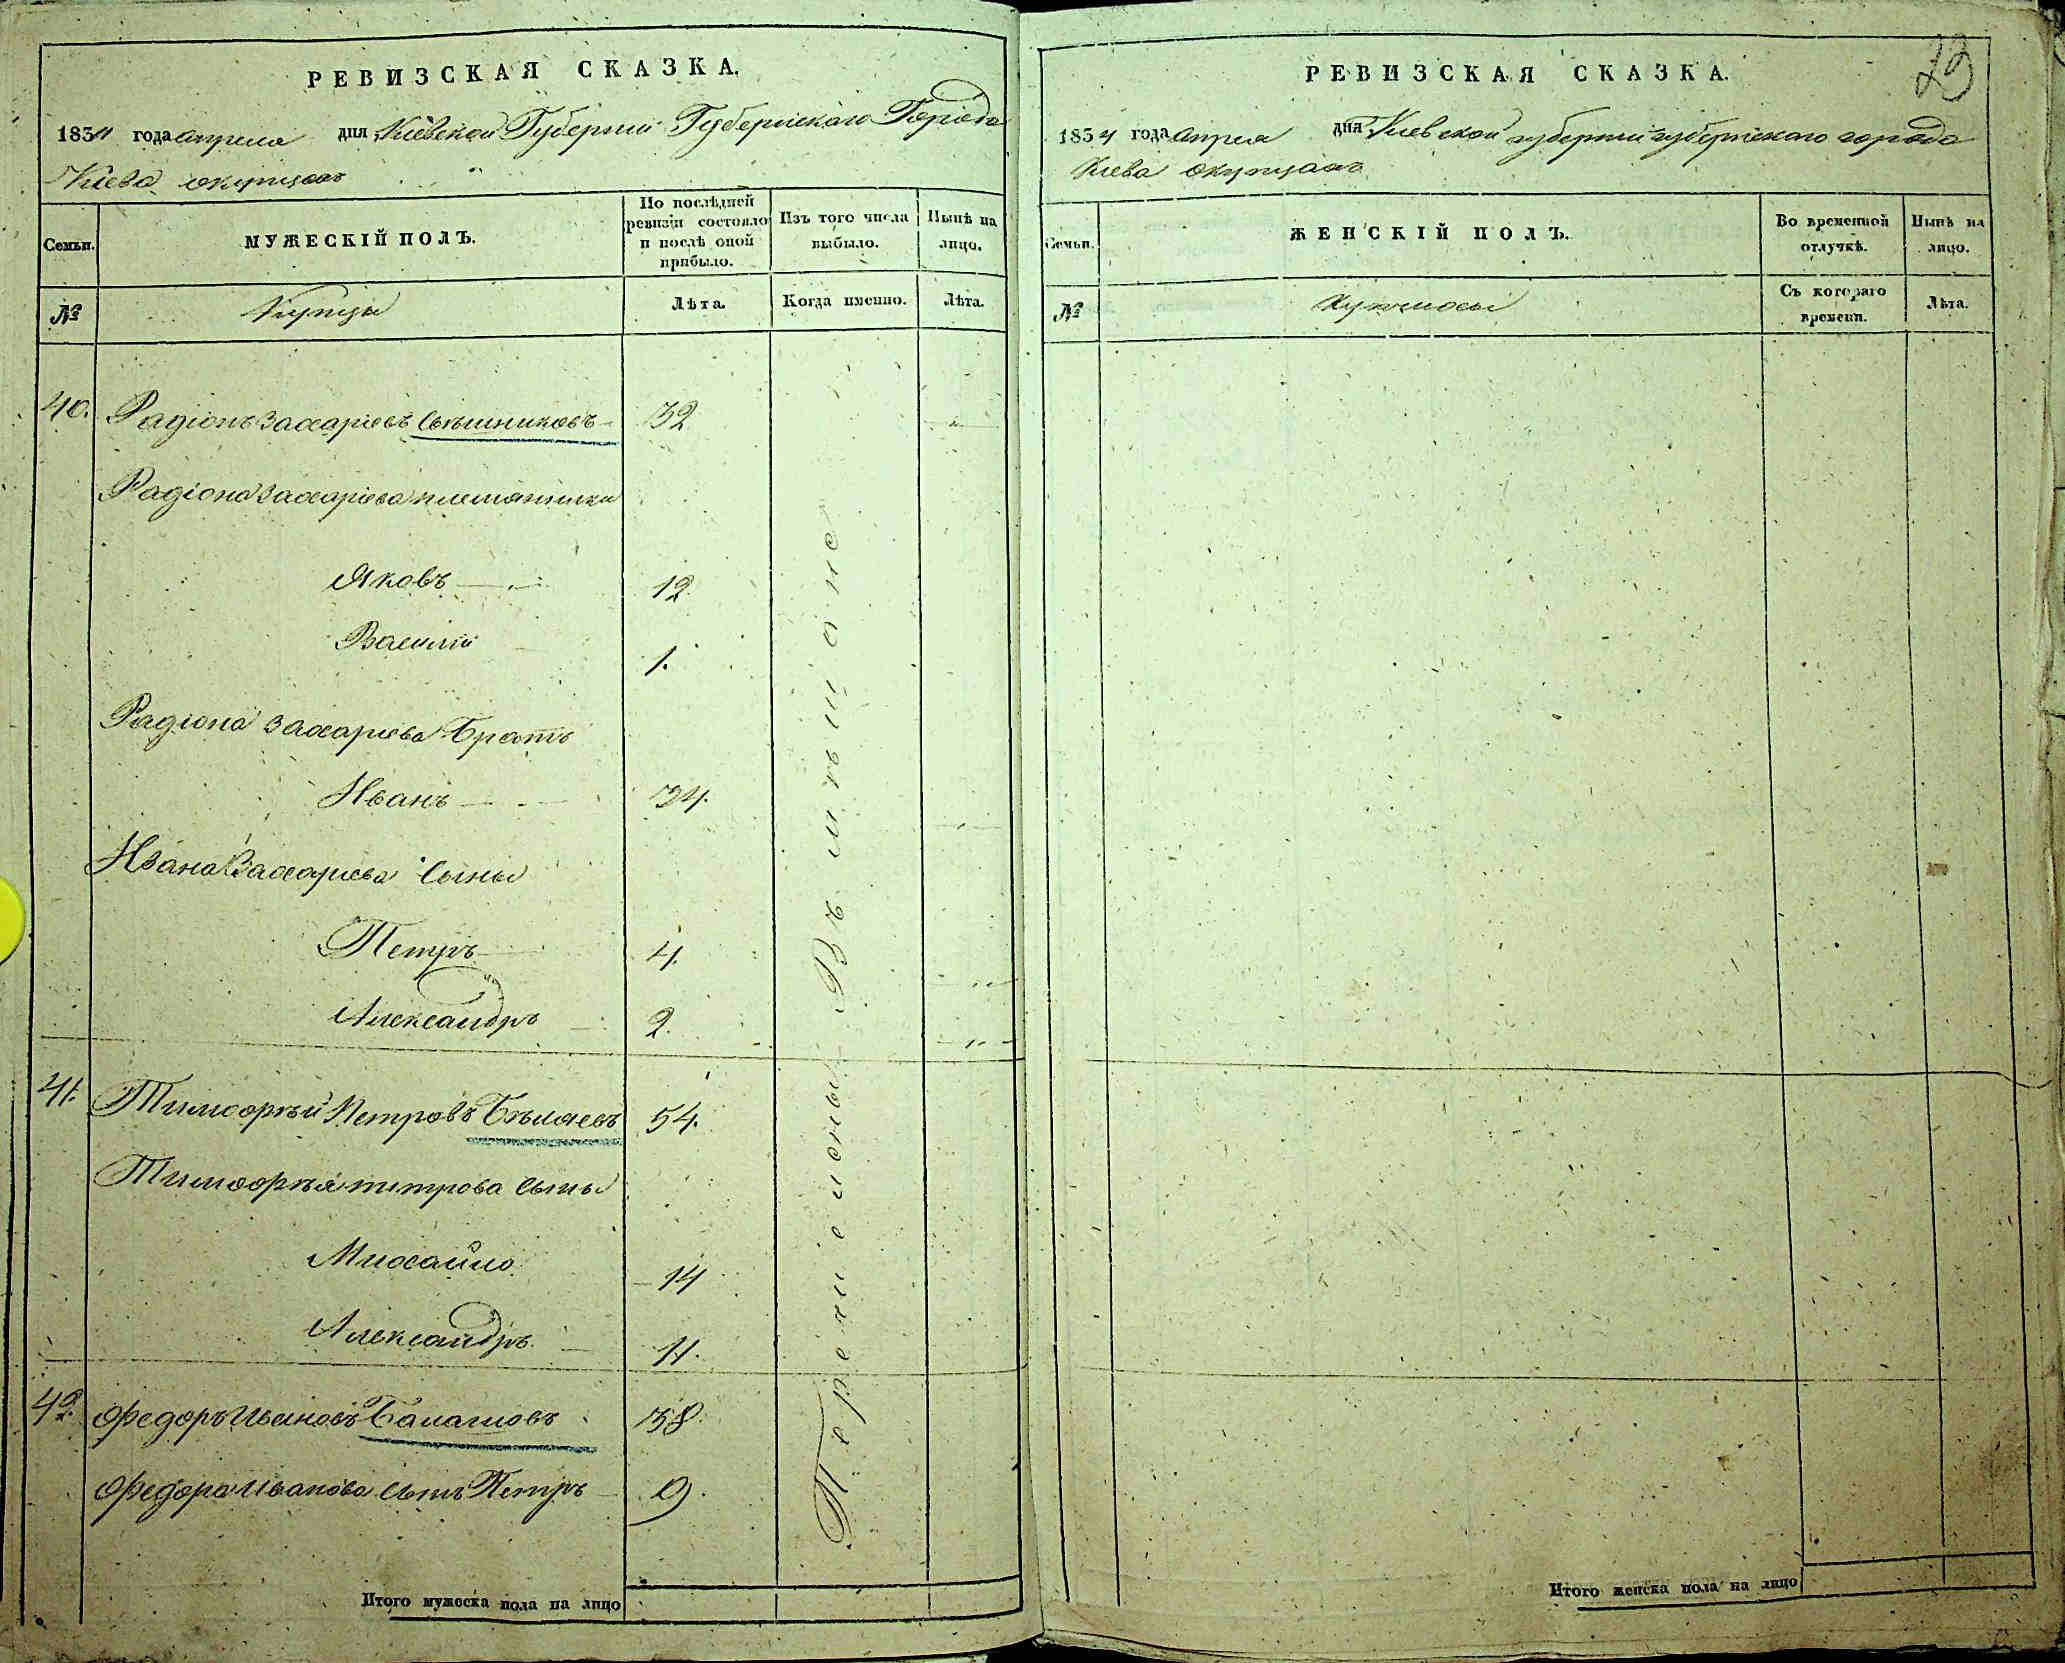 РЕВИЗСКАЯ СКАЗКА.
1834 года апреля дня Киевской Губернии Губернскаго Города
Киева окупцахъ
Семьи.
МУЖЕСКІЙ ПОЛЪ.
По послѣдней ревизіи состояло и послѣ оной прибыло.
Изъ того числа выбыло.
Нынѣ на лицо.
№
Купцы
Лѣта.
Когда именно.
Лѣта.
40. Радіонъ Захаріевъ Свѣшниковъ 32
Радіона Захаріева племянники
Яковъ 12
Василій 1.
Радіона Захаріева Братъ
Иванъ 34.
Ивана Захаріева Сыны
Петръ 4.
Александръ 2.
41. Тимофѣй Петровъ Бѣляевъ 54.
Тимофѣя петрова Сыны
Михайло 14
Александръ 11.
42. Федоръ Ивановъ Балашовъ 38.
Федора Иванова сынъ Петръ 9.
Перечислены Въ мѣщане
Итого мужеска пола на лицо
29
РЕВИЗСКАЯ СКАЗКА.
1834 года апреля дня Киевской губернии губернскаго города
Киева окупцахъ
Семьи.
ЖЕНСКІЙ ПОЛЪ.
Во временной отлучкѣ.
Нынѣ на лицо.
№
Съ котораго времени.
Лѣта.
Итого женска пола на лицо